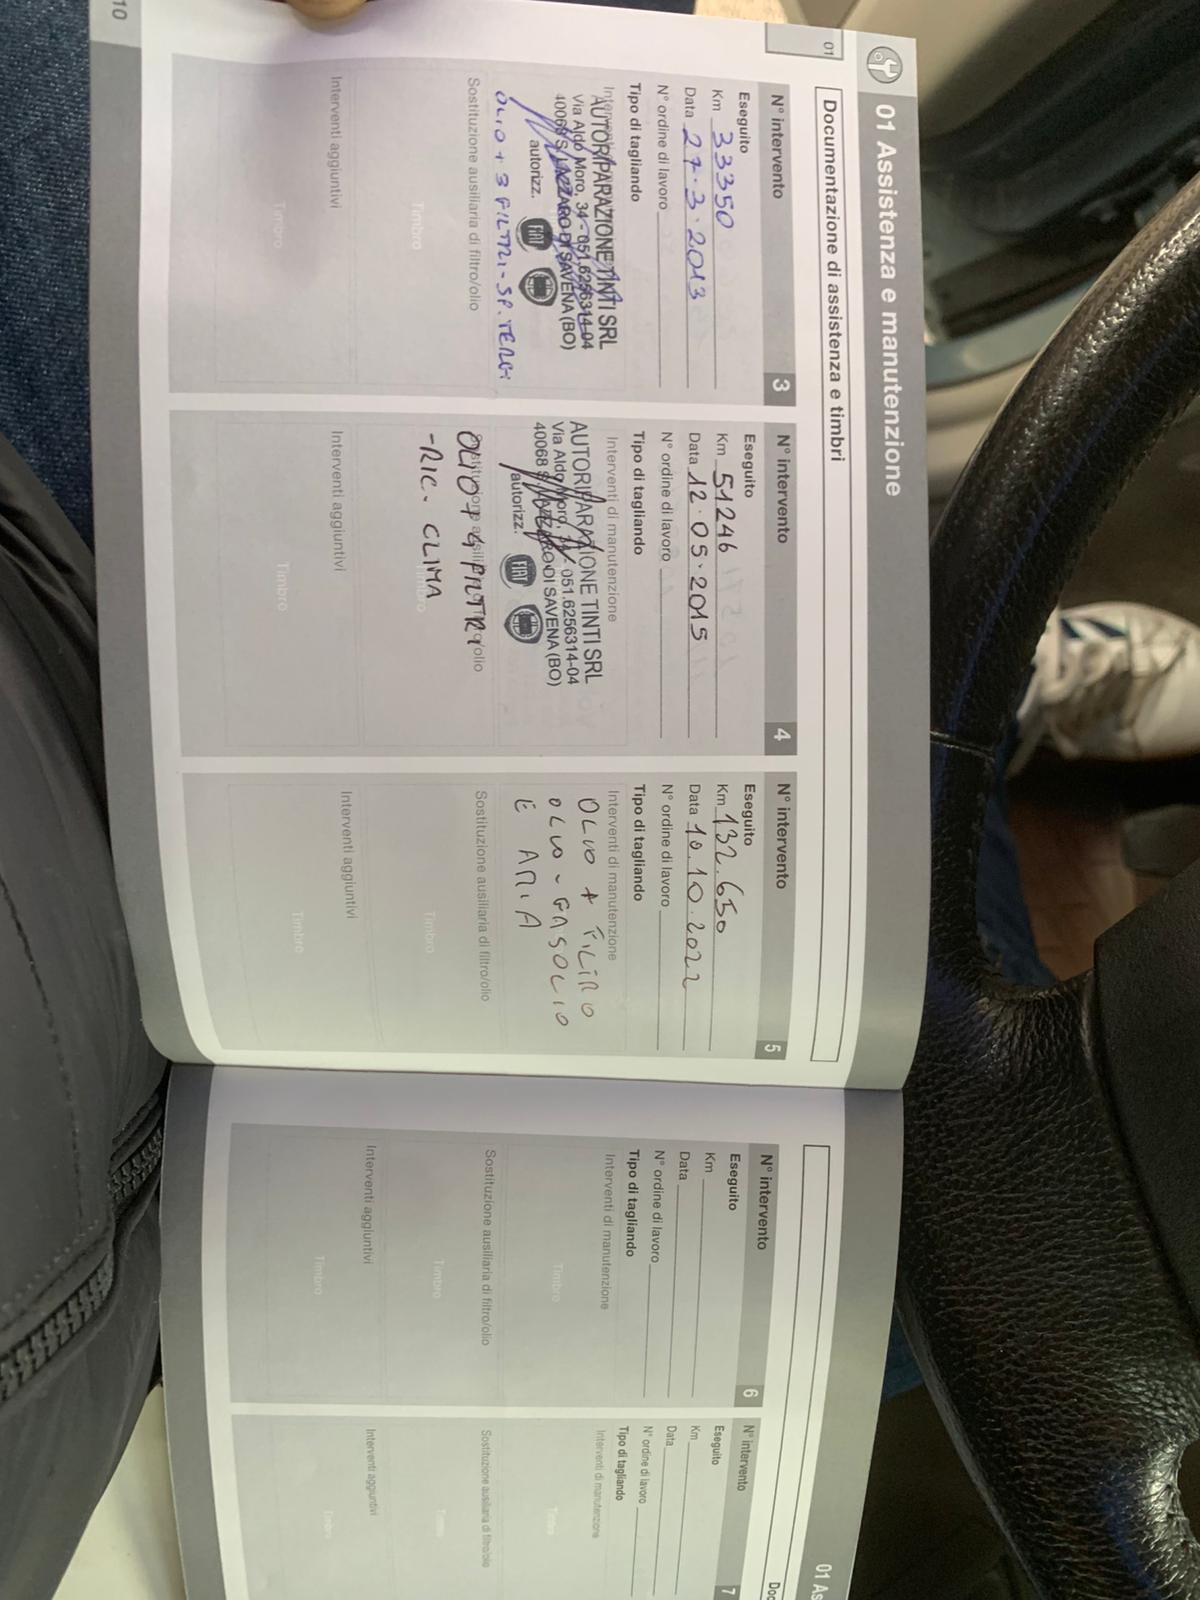 01 Assistenza e manutenzione
01
Documentazione di assistenza e timbri
N° intervento 3
Eseguito
Km 33350
Data 27.3.2013
N° ordine di lavoro
Tipo di tagliando
AUTORIPARAZIONE TINTI SRL
Via Aldo Moro, 34 - 051.6256314-04
40068 S. LAZZARO DI SAVENA (BO)
autorizz. FIAT
OLIO + 3 FILTRI - SP. TERGI
Sostituzione ausiliaria di filtro/olio
Timbro
Interventi aggiuntivi
Timbro
N° intervento 4
Eseguito
Km 51246
Data 12.05.2015
N° ordine di lavoro
Tipo di tagliando
Interventi di manutenzione
AUTORIPARAZIONE TINTI SRL
Via Aldo Moro, 34 - 051.6256314-04
40068 S. LAZZARO DI SAVENA (BO)
autorizz. FIAT
OLIO + 4 FILTRI
-RIC. CLIMA
Timbro
Interventi aggiuntivi
Timbro
N° intervento 5
Eseguito
Km 132.650
Data 10.10.2022
N° ordine di lavoro
Tipo di tagliando
Interventi di manutenzione
OLIO + FILTRO
OLIO - GASOLIO
E ARIA
Sostituzione ausiliaria di filtro/olio
Timbro
Interventi aggiuntivi
Timbro
10
01 As
Doc
N° intervento 6
Eseguito
Km
Data
N° ordine di lavoro
Tipo di tagliando
Interventi di manutenzione
Timbro
Sostituzione ausiliaria di filtro/olio
Timbro
Interventi aggiuntivi
Timbro
N° intervento 7
Eseguito
Km
Data
N° ordine di lavoro
Tipo di tagliando
Interventi di manutenzione
Timbro
Sostituzione ausiliaria di filtro/olio
Timbro
Interventi aggiuntivi
Timbro